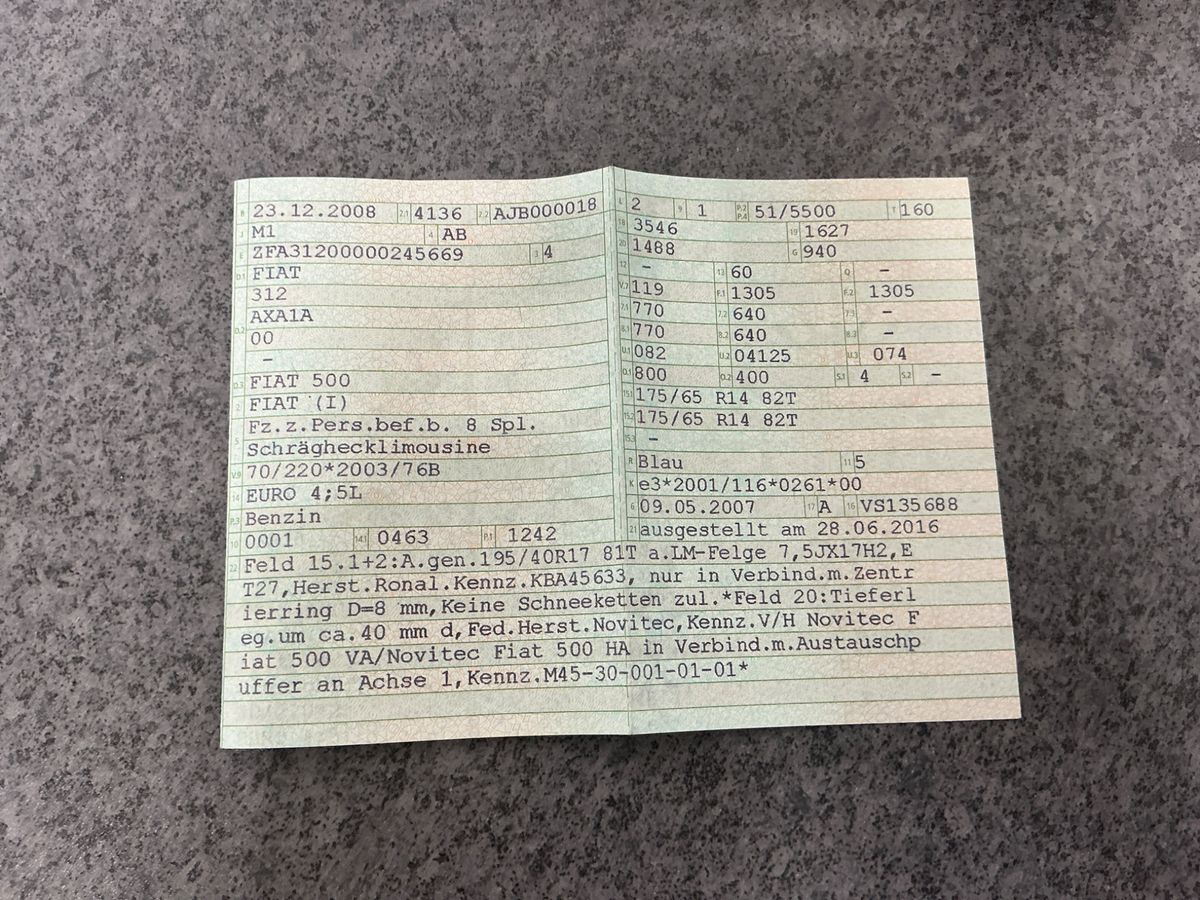 B 23.12.2008 2.1 4136 2.2 AJB000018
J M1 4 AB
E ZFA31200000245669 3 4
D.1 FIAT
312
D.2 AXA1A
00
–
D.3 FIAT 500
2 FIAT (I)
5 Fz.z.Pers.bef.b. 8 Spl.
Schräghecklimousine
V.9 70/220*2003/76B
14 EURO 4;5L
P.3 Benzin
10 0001 14.1 0463 P.1 1242
L 2 9 1 P.2 P.4 51/5500 T 160
18 3546 19 1627
20 1488 G 940
12 – 13 60 Q –
V.7 119 F.1 1305 F.2 1305
7.1 770 7.2 640 7.3 –
8.1 770 8.2 640 8.3 –
U.1 082 U.2 04125 U.3 074
O.1 800 O.2 400 S.1 4 S.2 –
15.1 175/65 R14 82T
15.2 175/65 R14 82T
15.3 –
R Blau 11 5
K e3*2001/116*0261*00
6 09.05.2007 17 A 16 VS135688
21 ausgestellt am 28.06.2016
22 Feld 15.1+2:A.gen.195/40R17 81T a.LM-Felge 7,5JX17H2,E
T27,Herst.Ronal.Kennz.KBA45633, nur in Verbind.m.Zentr
ierring D=8 mm,Keine Schneeketten zul.*Feld 20:Tieferl
eg.um ca.40 mm d,Fed.Herst.Novitec,Kennz.V/H Novitec F
iat 500 VA/Novitec Fiat 500 HA in Verbind.m.Austauschp
uffer an Achse 1,Kennz.M45-30-001-01-01*